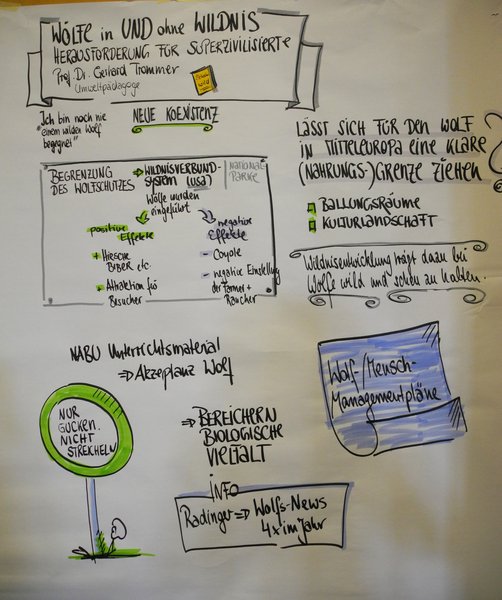 WÖLFE in UND ohne WILDNIS
HERAUSFORDERUNG FÜR SUPERZIVILISIERTE
Prof. Dr. Gerhard Trommer
Umweltpädagoge
Ich bin noch nie
"einem wilden Wolf
begegnet"
NEUE KOEXISTENZ
BEGRENZUNG
DES WOLFSCHUTZES
WILDNISVERBUND-
SYSTEM (USA)
NATIONAL-
PARKE
Wölfe wurden
eingeführt
positive
Effekte
+ HIRSCHE
BIBER etc.
+ Attraktion für
Besucher
negative
Effekte
- Coyote
- negative Einstellung
der Farmer +
Rancher
LÄSST SICH FÜR DEN WOLF
IN MITTELEUROPA EINE KLARE
(NAHRUNGS-)GRENZE ZIEHEN?
BALLUNGSRÄUME
KULTURLANDSCHAFT
Wildnisentwicklung trägt dazu bei
Wölfe wild und scheu zu halten
NABU Unterrichtsmaterial
⇒ Akzeptanz Wolf
NUR
GUCKEN.
NICHT
STREICHELN
⇒ BEREICHERN
BIOLOGISCHE
VIELFALT
Wolf-/Mensch-
Managementpläne
INFO
Radinger ⇒ Wolfs-News
4x im Jahr